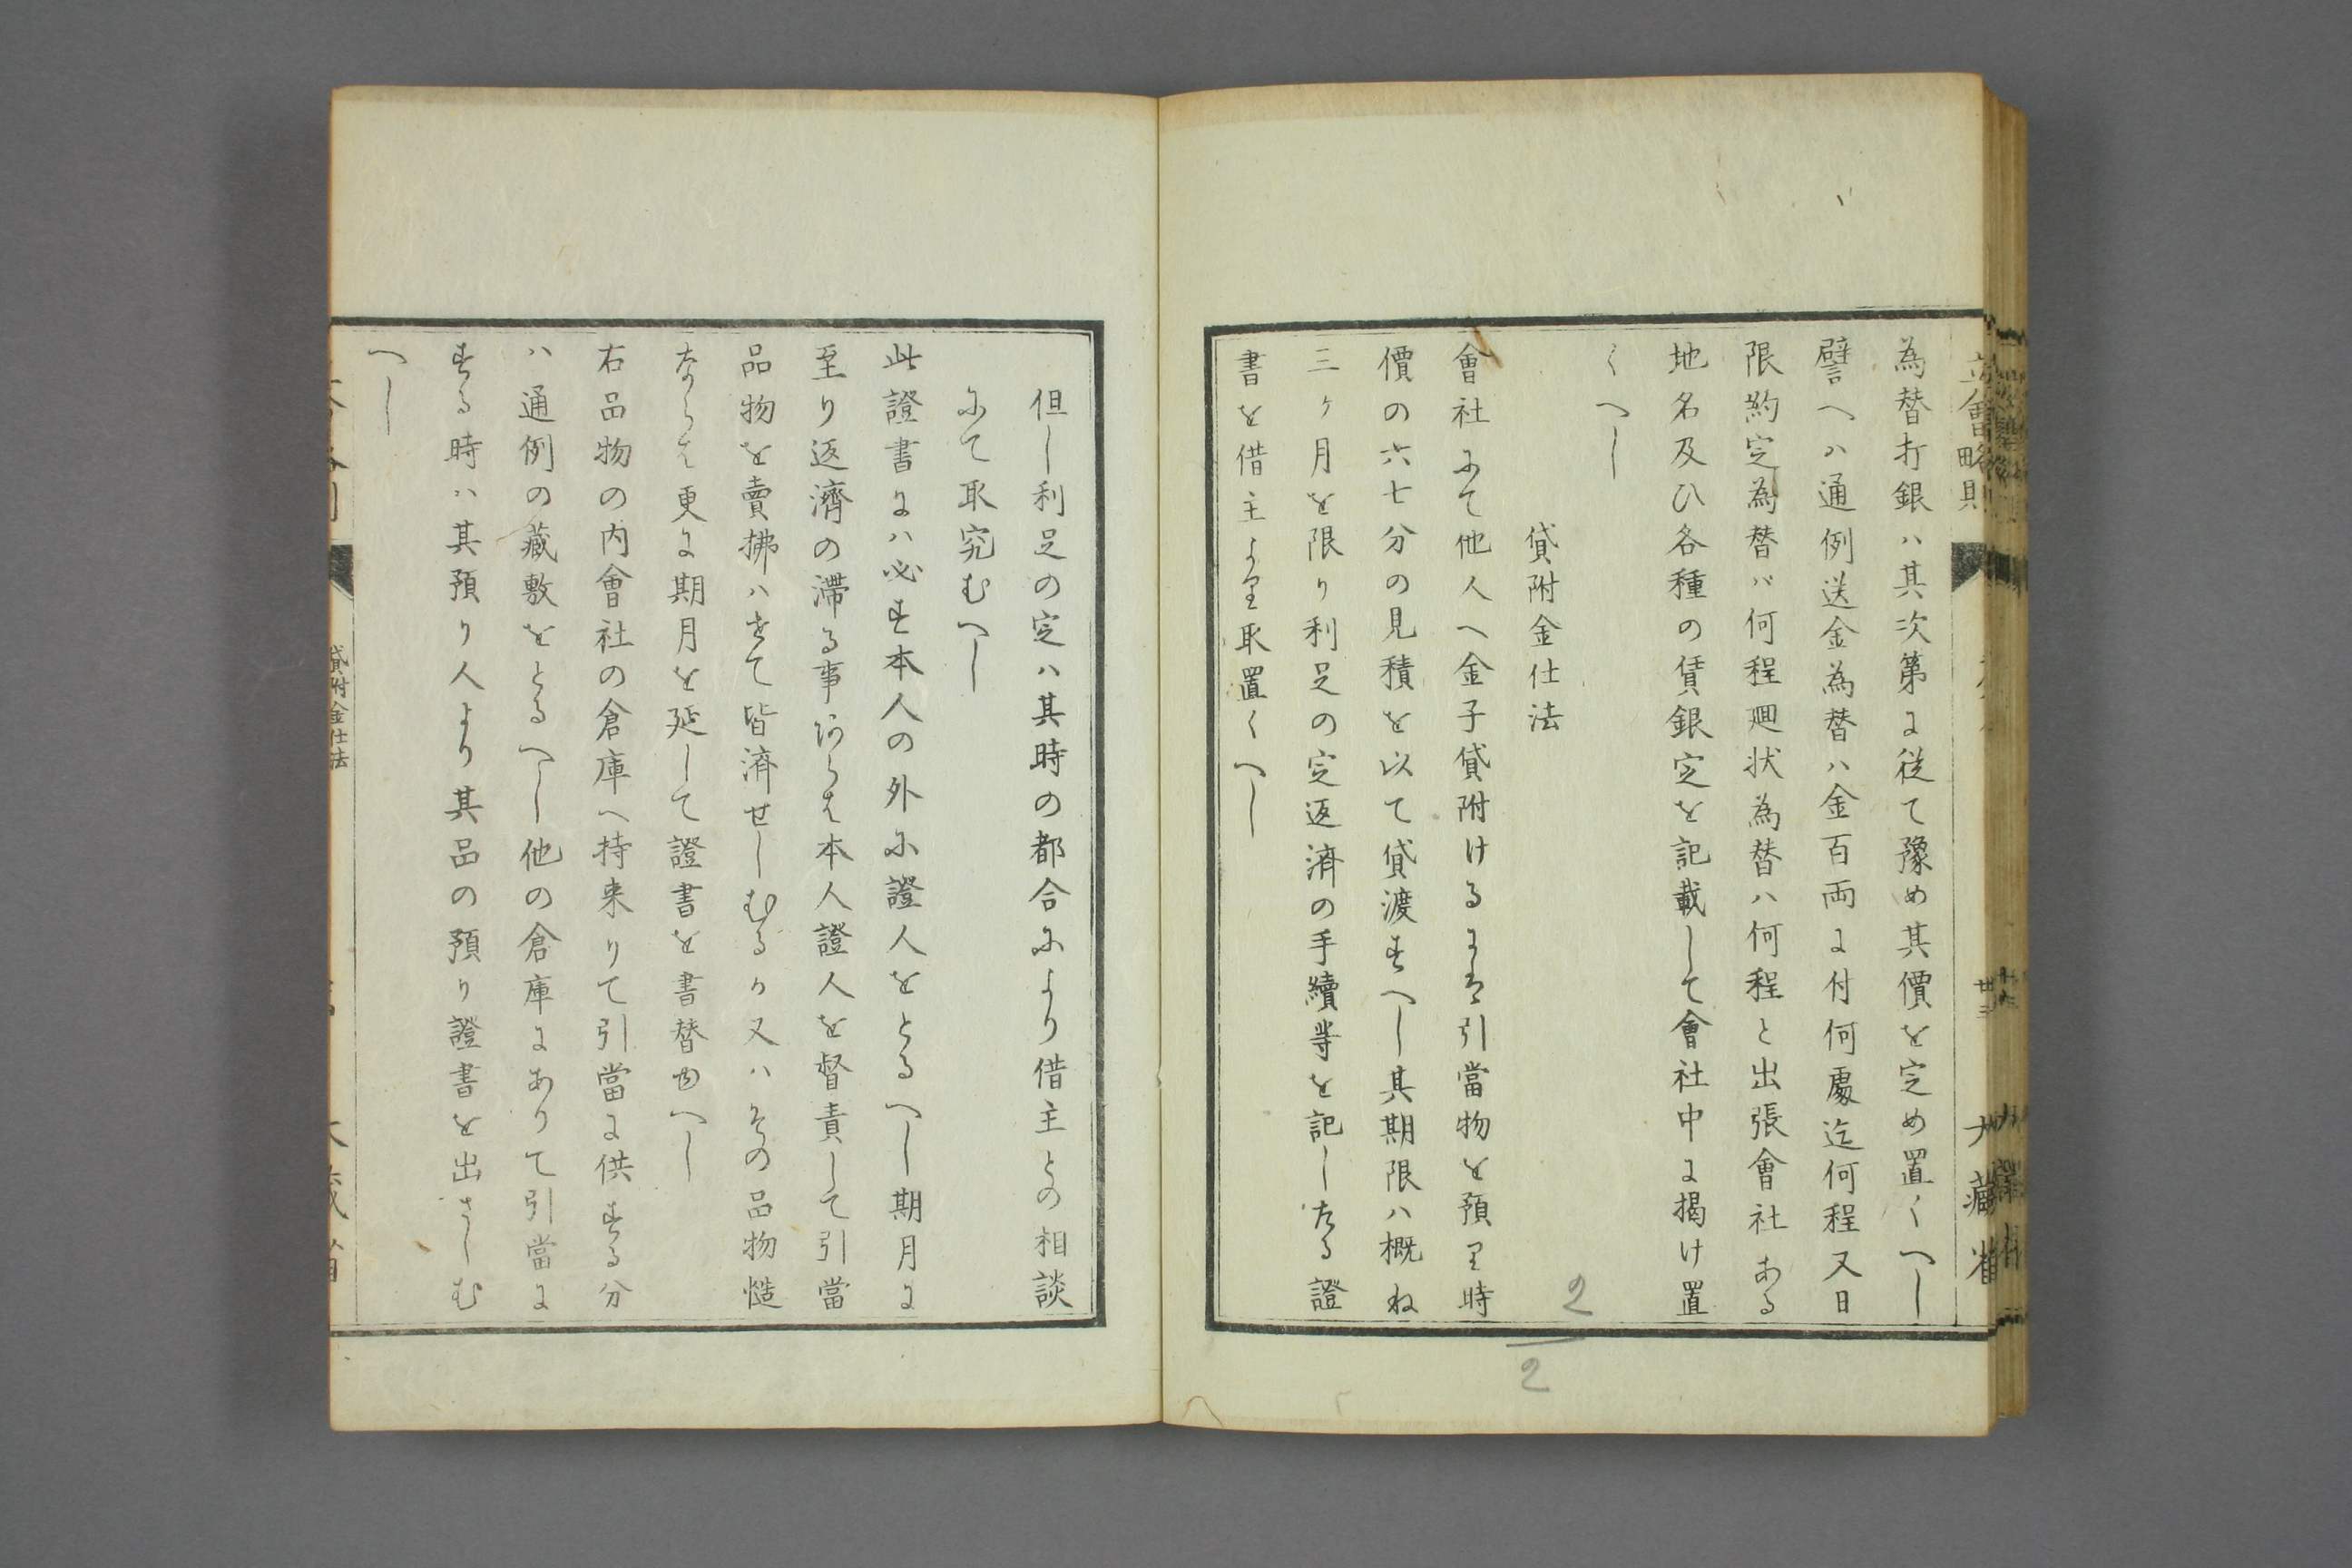 立會略則
大藏省
為替打銀ハ其次第に従て豫め其價を定め置くへし
譬へハ通例送金為替ハ金百両に付何處迄何程又日
限約定為替ハ何程廻状為替ハ何程と出張會社ある
地名及ひ各種の賃銀定を記載して會社中に掲け置
くへし
貸附金仕法
會社にて他人へ金子貸附けるには引當物を預り時
價の六七分の見積を以て貸渡すへし其期限ハ概ね
三ヶ月を限り利足の定返済の手續等を記したる證
書を借主より取置くへし
2
2
但し利足の定ハ其時の都合により借主との相談
にて取究むへし
此證書にハ必す本人の外に證人をとるへし期月に
至り返濟の滞る事あらは本人證人を督責して引當
品物を賣拂ハせて皆濟せしむるか又ハその品物慥
ならは更に期月を延して證書を書替ゆへし
右品物の内會社の倉庫へ持来りて引當に供する分
ハ通例の藏敷をとるへし他の倉庫にありて引當に
する時ハ其預り人より其品の預り證書を出さしむ
へし
貸附金仕法